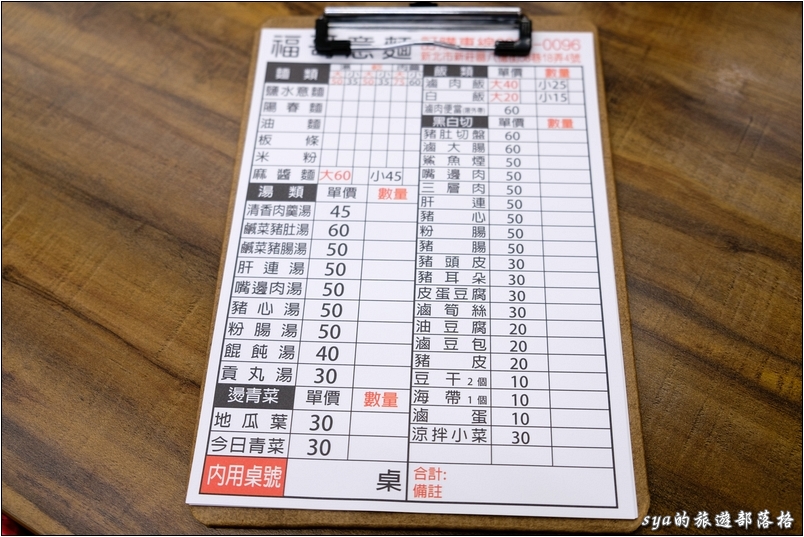 福 意麵
訂購專線 -0096
新北市新莊區 巷18弄4號
麵類 湯 乾
大 小 大 小 大 小
鹽水意麵
陽春麵
油麵
板條
米粉
麻醬麵 大60 小45
湯類 單價 數量
清香肉羹湯 45
鹹菜豬肚湯 60
鹹菜豬腸湯 50
肝連湯 50
嘴邊肉湯 50
豬心湯 50
粉腸湯 50
餛飩湯 40
貢丸湯 30
燙青菜 單價 數量
地瓜葉 30
今日青菜 30
內用桌號 桌
飯類 單價 數量
滷肉飯 大40 小25
白飯 大20 小15
滷肉便當 60
黑白切 單價 數量
豬肚切盤 60
滷大腸 60
鯊魚煙 50
嘴邊肉 50
三層肉 50
肝連 50
豬心 50
粉腸 50
豬腸 50
豬頭皮 30
豬耳朵 30
皮蛋豆腐 30
滷筍絲 30
油豆腐 20
滷豆包 20
豬皮 20
豆干2個 10
海帶1個 10
滷蛋 10
涼拌小菜 30
合計:
備註
sya的旅遊部落格